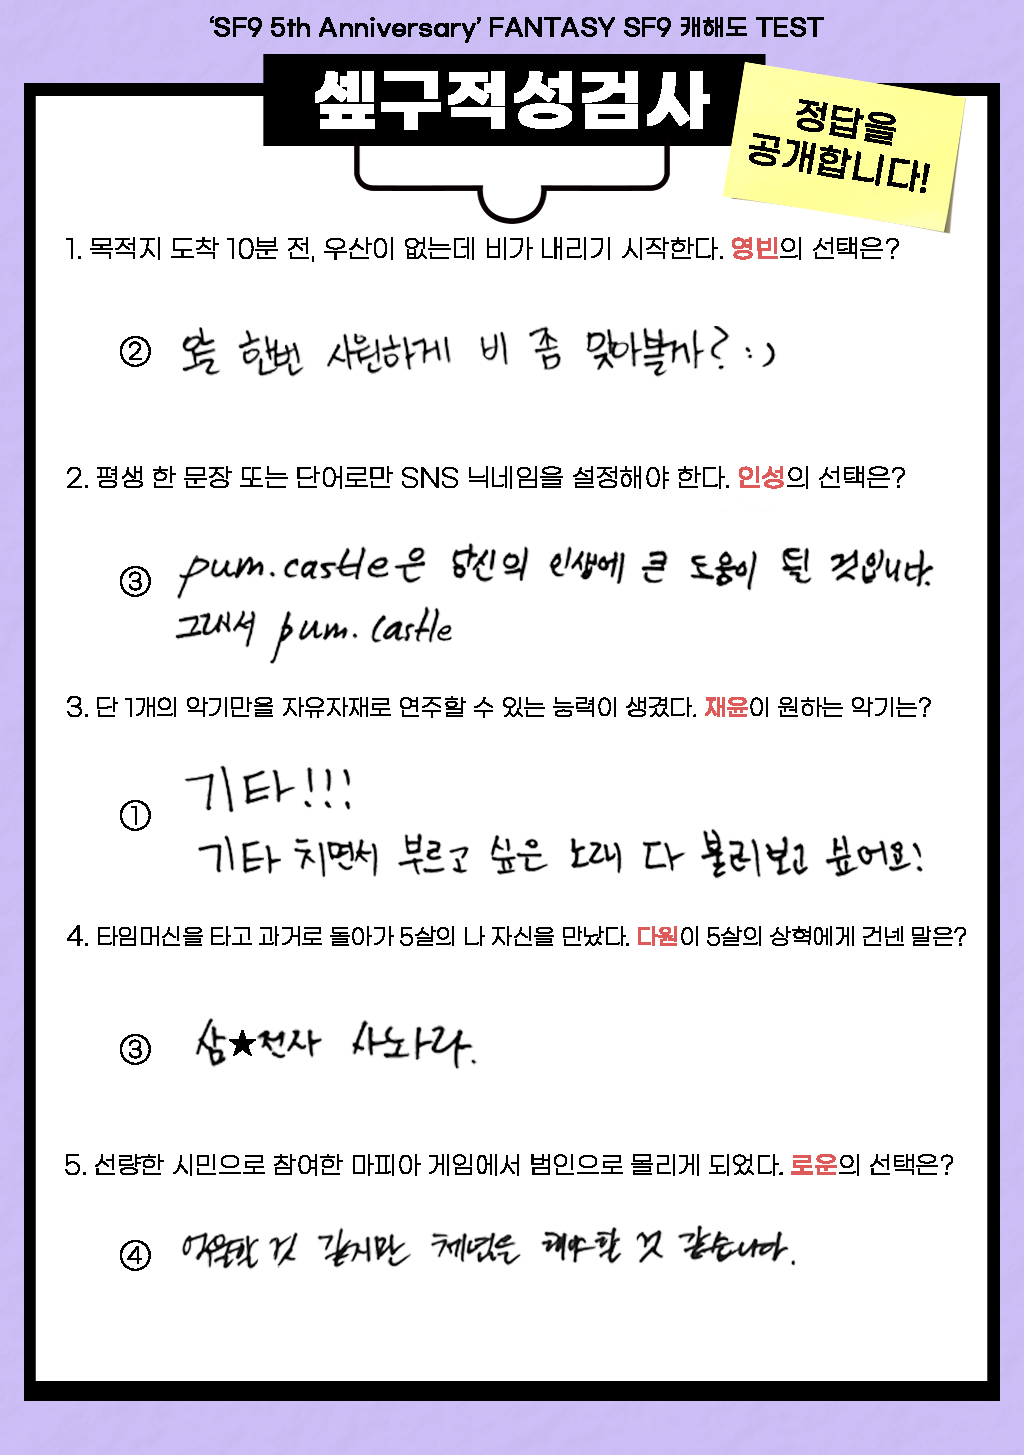 ‘SF9 5th Anniversary’ FANTASY SF9 캐해도 TEST
셒구적성검사
정답을
공개합니다!
1. 목적지 도착 10분 전, 우산이 없는데 비가 내리기 시작한다. 영빈의 선택은?
② 오늘 한번 시원하게 비 좀 맞아볼까? : )
2. 평생 한 문장 또는 단어로만 SNS 닉네임을 설정해야 한다. 인성의 선택은?
③ pum.castle은 당신의 인생에 큰 도움이 될 것입니다.
그래서 pum.castle
3. 단 1개의 악기만을 자유자재로 연주할 수 있는 능력이 생겼다. 재윤이 원하는 악기는?
① 기타!!!
기타 치면서 부르고 싶은 노래 다 불러보고 싶어요!
4. 타임머신을 타고 과거로 돌아가 5살의 나 자신을 만났다. 다원이 5살의 상혁에게 건넨 말은?
③ 삼★전자 사노라.
5. 선량한 시민으로 참여한 마피아 게임에서 범인으로 몰리게 되었다. 로운의 선택은?
④ 억울할 것 같지만 체념을 해야 할 것 같습니다.